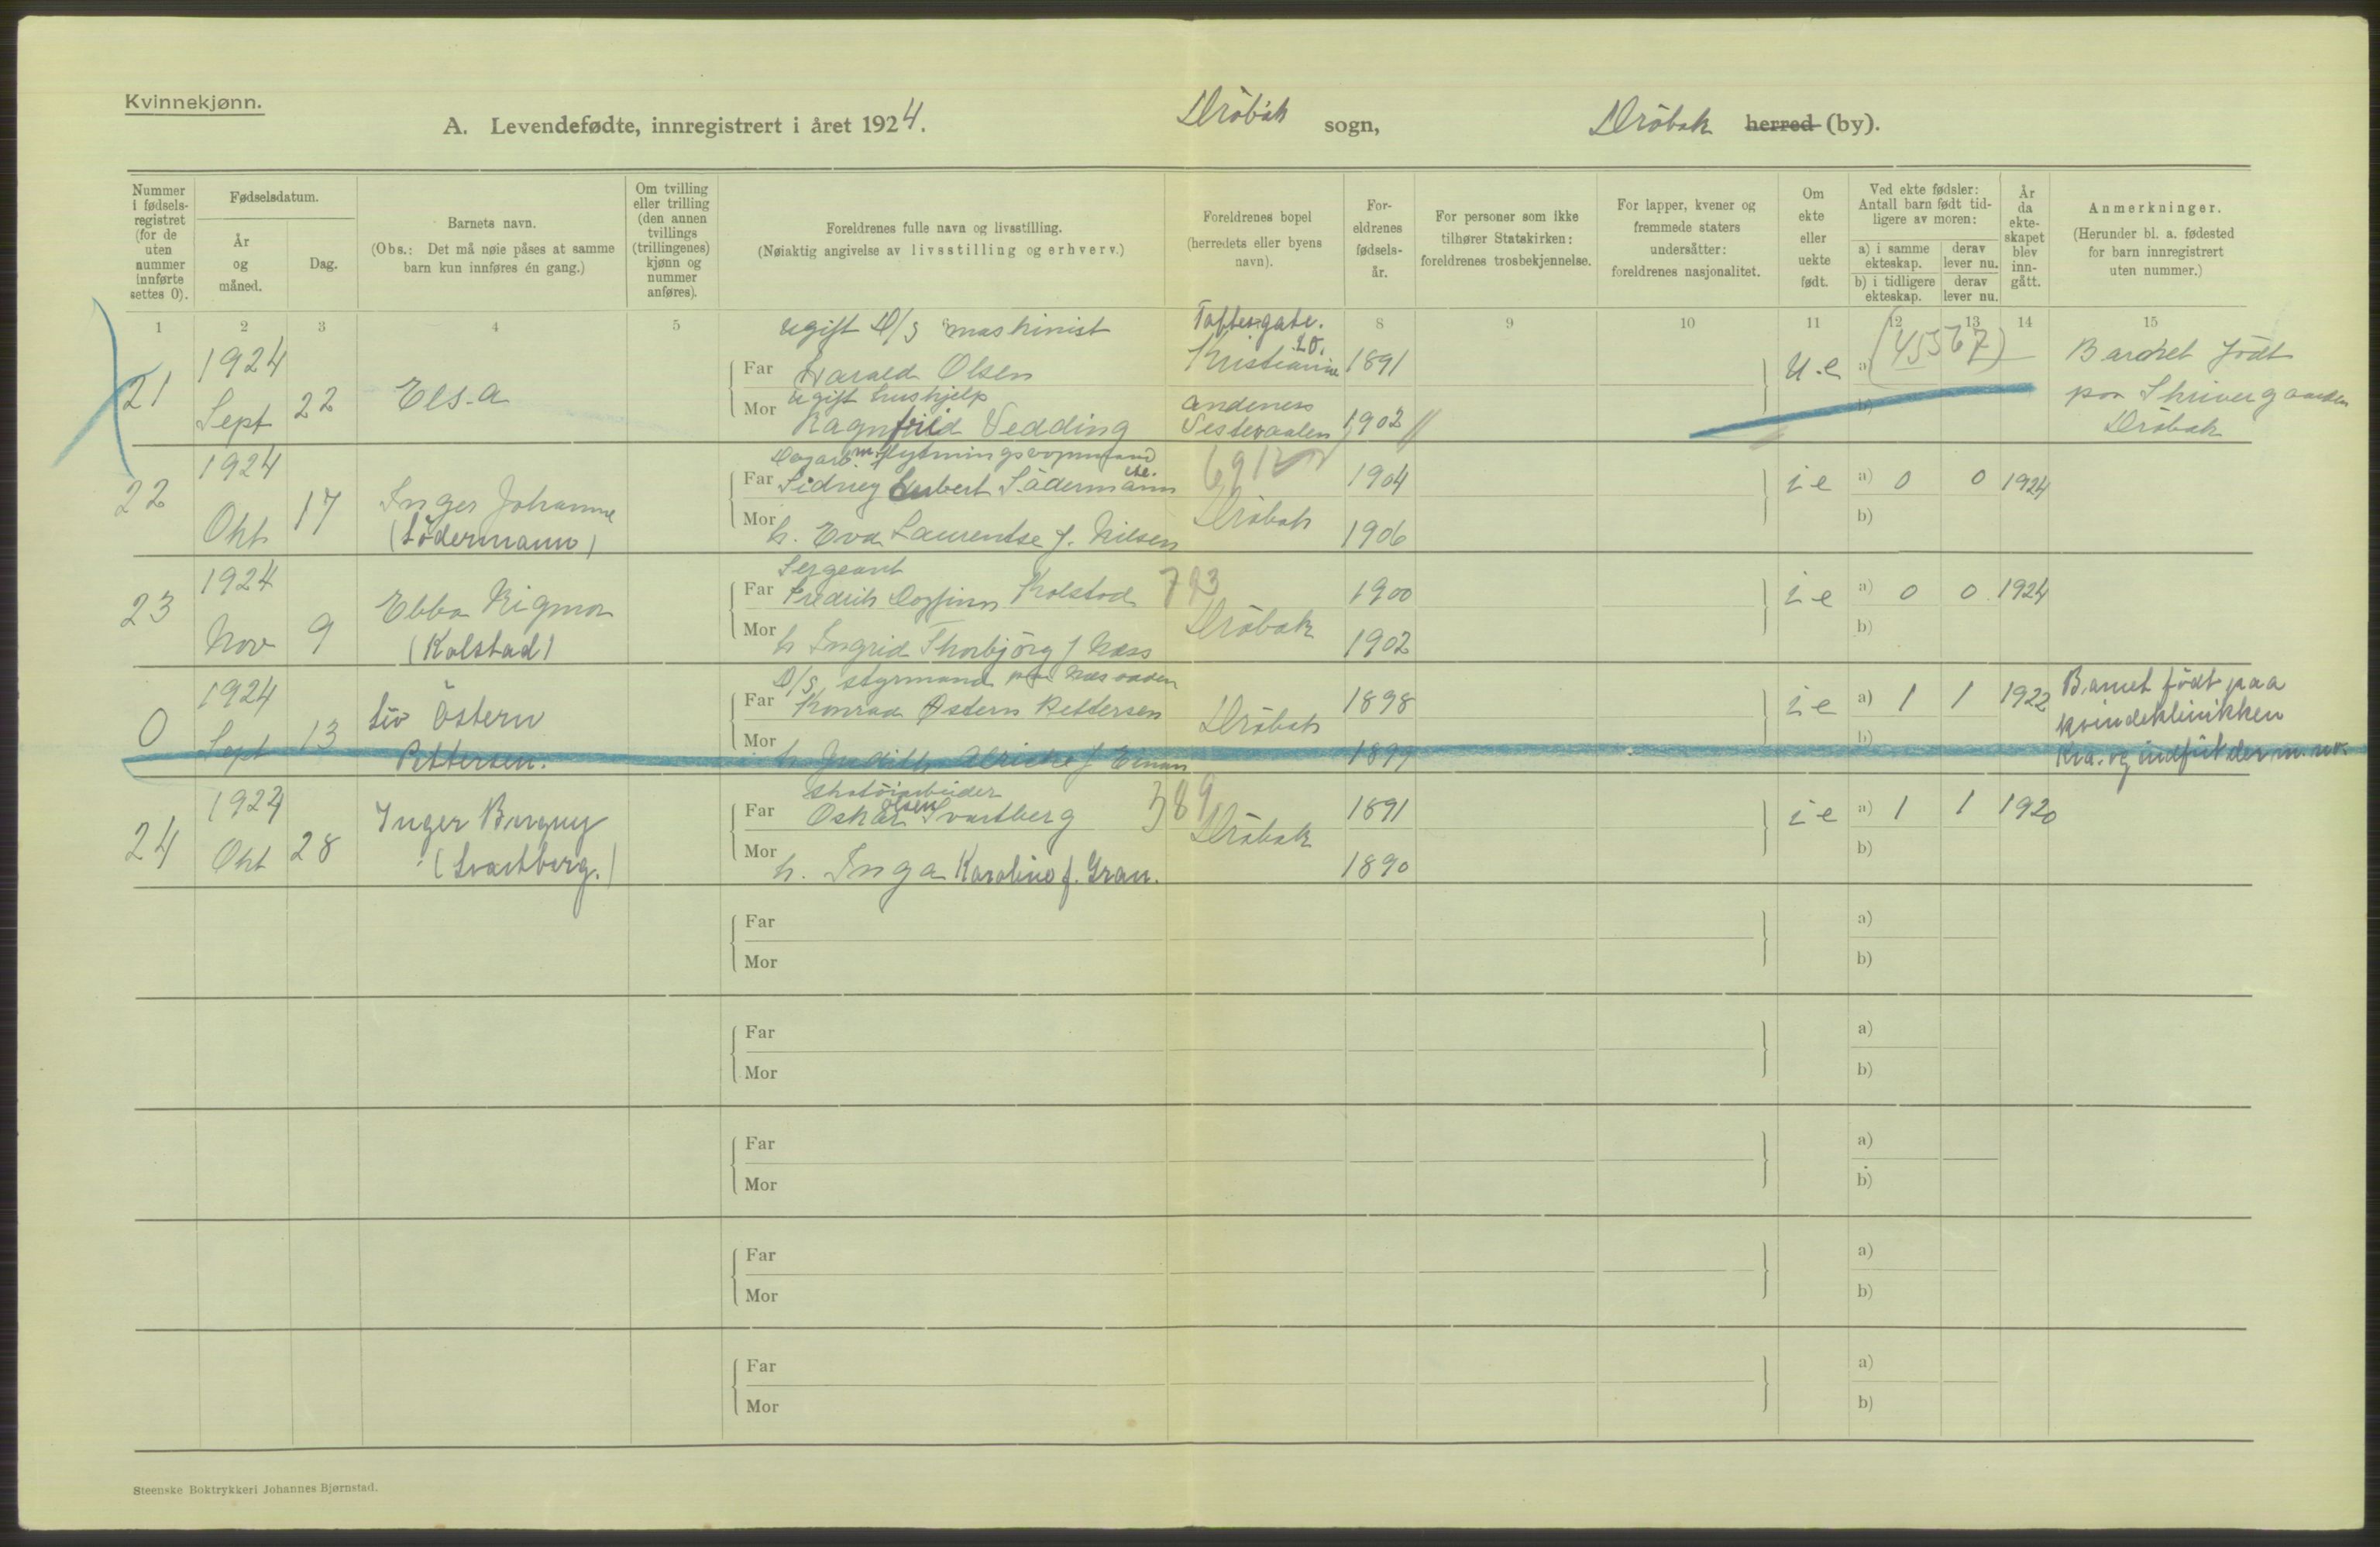 Kvinnekjønn.
A. Levendefødte, innregistrert i året 1924. Drøbak sogn, Drøbak herred (by).
Nummer i fødsels-registret (for de uten nummer innførte settes 0).
Fødselsdatum.
År og måned.
Dag.
Barnets navn.
(Obs.: Det må nøie påses at samme barn kun innføres én gang.)
Om tvilling eller trilling (den annen tvillings (trillingenes) kjønn og nummer anføres).
Foreldrenes fulle navn og livsstilling.
(Nøiaktig angivelse av livsstilling og erhverv.)
Foreldrenes bopel (herredets eller byens navn).
For-eldrenes fødsels-år.
For personer som ikke tilhører Statskirken: foreldrenes trosbekjennelse.
For lapper, kvener og fremmede staters undersåtter: foreldrenes nasjonalitet.
Om ekte eller uekte født.
Ved ekte fødsler: Antall barn født tid-ligere av moren:
a) i samme ekteskap. derav lever nu.
b) i tidligere ekteskap. derav lever nu.
År da ekte-skapet blev inn-gått.
Anmerkninger.
(Herunder bl. a. fødested for barn innregistrert uten nummer.)
1 2 3 4 5 8 9 10 11 12 13 14 15
ugift D/S maskinist
Toftesgate. 20.
21 1924 Sept 22 Elsa
Far Harald Olsen Kristiania 1891
ugift hushjelp
Mor Ragnfrid Vedding Andenes Vesteraalen 1902
u.e a) (45567)
b)
Barnet födt paa Skrivergaarden Dröbak
22 1924 Okt 17 Inger Johanne (Södermann)
Far Sidney Södermann 1904
Mor h. Eva Laurentse f. Nilsen Dröbak 1906
6912
i e a) 0 0 1924
b)
23 1924 Nov 9 Ebba Rigmor (Kolstad)
Sergeant
Far Fredrik Dagfinn Kolstad 793 1900
Mor h Ingrid Thorbjörg f Næss Dröbak 1902
i e a) 0 0 1924
b)
0 1924 Sept 13 Liv Östern Pettersen.
D/S styrmand
Far Konrad Östern Pettersen Dröbak 1898
Mor h Judith 1899
i e a) 1 1 1922
b)
Barnet födt paa kvindeklinikken Kra. og indfört der m. nr.
24 1924 Okt 28 Inger Bergny (Svartberg.)
Far Oskar Olsen Svartberg 389 1891
Mor h. Inga Karoline f. Gran. Dröbak 1890
i e a) 1 1 1920
b)
Far a)
Mor b)
Far a)
Mor b)
Far a)
Mor b)
Far a)
Mor b)
Far a)
Mor b)
Steenske Boktrykkeri Johannes Bjørnstad.